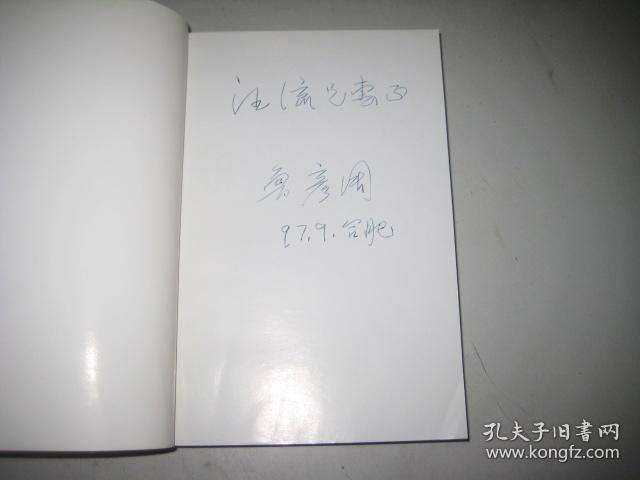 汪流兄惠正
鲁彦周
97.9.合肥
孔夫子旧書网
www.kongfz.com